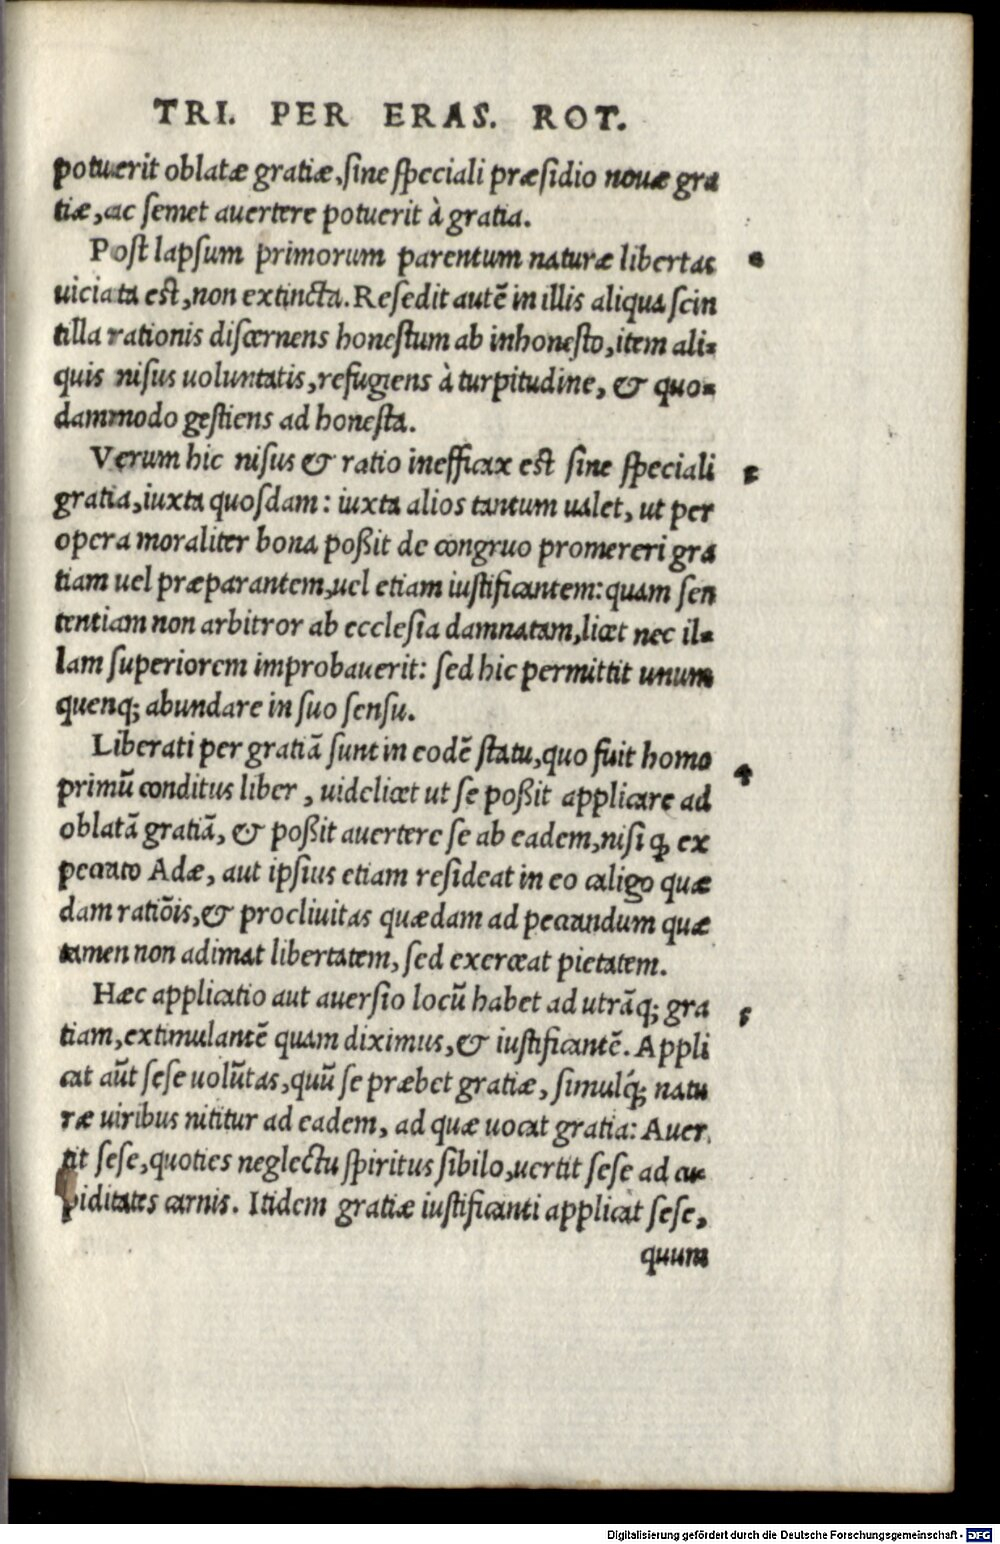 TRI. PER ERAS. ROT.
potuerit oblatæ gratiæ, sine speciali præsidio nouæ gra
tiæ, ac semet auertere potuerit à gratia.
Post lapsum primorum parentum naturæ libertas
uiciata est, non extincta. Resedit autē in illis aliqua scin
tilla rationis discernens honestum ab inhonesto, item ali-
quis nisus uoluntatis, refugiens à turpitudine, & quo-
dammodo gestiens ad honesta.
Verum hic nisus & ratio inefficax est sine speciali
gratia, iuxta quosdam: iuxta alios tantum ualet, ut per
opera moraliter bona poßit de congruo promereri gra
tiam uel præparantem, uel etiam iustificantem: quam sen
tentiam non arbitror ab ecclesia damnatam, licet nec il-
lam superiorem improbauerit: sed hic permittit unum
quenq; abundare in suo sensu.
Liberati per gratiā sunt in eodē statu, quo fuit homo
primū conditus liber, uidelicet ut se poßit applicare ad
oblatā gratiā, & poßit auertere se ab eadem, nisi ꝙ ex
peccato Adæ, aut ipsius etiam resideat in eo caligo quæ
dam ratiōis, & procliuitas quædam ad peccandum quæ
tamen non adimat libertatem, sed exerceat pietatem.
Hæc applicatio aut auersio locū habet ad utrāq; gra
tiam, extimulantē quam diximus, & iustificantē. Appli
cat aūt sese uolūtas, quū se præbet gratiæ, simulq́; natu
ræ uiribus nititur ad eadem, ad quæ uocat gratia: Auer
tit sese, quoties neglectu spiritus sibilo, uertit sese ad cu-
piditates carnis. Itidem gratiæ iustificanti applicat sese,
quum
Digitalisierung gefördert durch die Deutsche Forschungsgemeinschaft - DFG